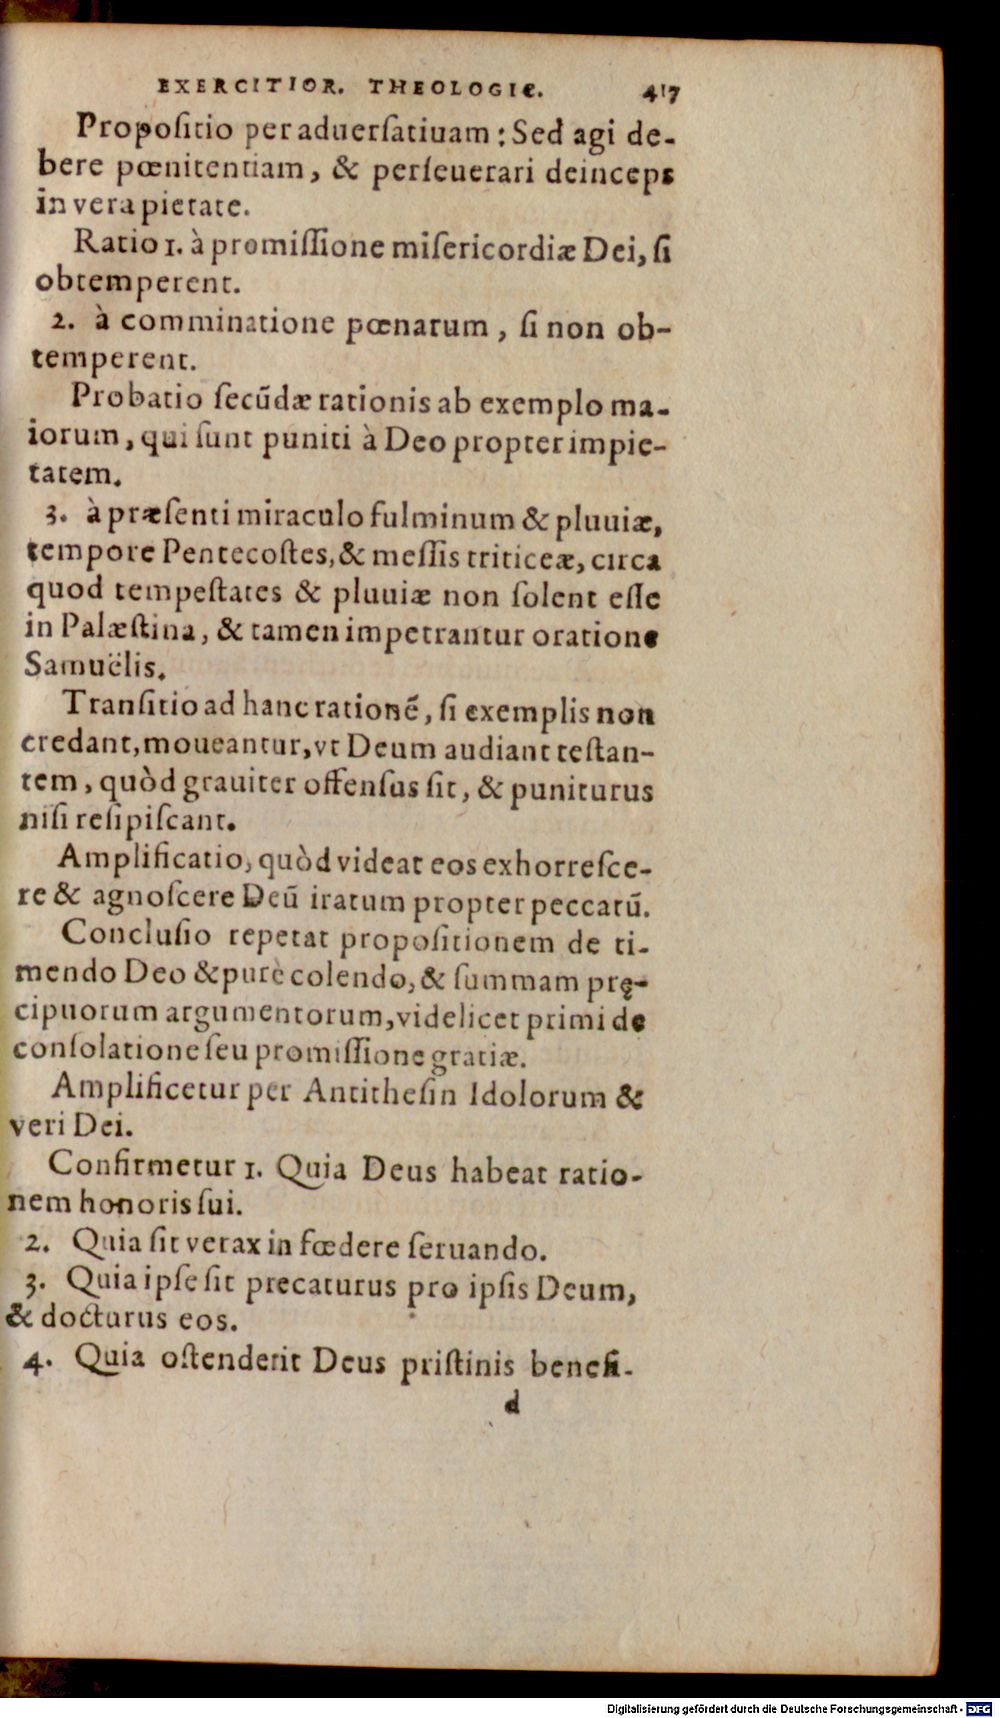 EXERCITIOR. THEOLOGIE. 417
Propoſitio per aduerſatiuam: Sed agi de-
bere pœnitentiam, & perſeuerari deinceps
in vera pietate.
Ratio 1. à promiſſione miſericordiæ Dei, ſi
obtemperent.
2. à comminatione pœnarum, ſi non ob-
temperent.
Probatio ſecūdæ rationis ab exemplo ma-
iorum, qui ſunt puniti à Deo propter impie-
tatem.
3. à præſenti miraculo fulminum & pluuiæ,
tempore Pentecoſtes, & meſſis triticeæ, circa
quod tempeſtates & pluuiæ non ſolent eſſe
in Palæſtina, & tamen impetrantur oratione
Samuëlis.
Tranſitio ad hanc rationē, ſi exemplis non
credant, moueantur, vt Deum audiant teſtan-
tem, quòd grauiter offenſus ſit, & puniturus
niſi reſipiſcant.
Amplificatio, quòd videat eos exhorreſce-
re & agnoſcere Deū iratum propter peccatū.
Concluſio repetat propoſitionem de ti-
mendo Deo & purè colendo, & ſummam prę-
cipuorum argumentorum, videlicet primi de
conſolatione ſeu promiſſione gratiæ.
Amplificetur per Antitheſin Idolorum &
veri Dei.
Confirmetur 1. Quia Deus habeat ratio-
nem honoris ſui.
2. Quia ſit verax in fœdere ſeruando.
3. Quia ipſe ſit precaturus pro ipſis Deum,
& docturus eos.
4. Quia oſtenderit Deus priſtinis benefi-
d
Digitalisierung gefördert durch die Deutsche Forschungsgemeinschaft - DFG